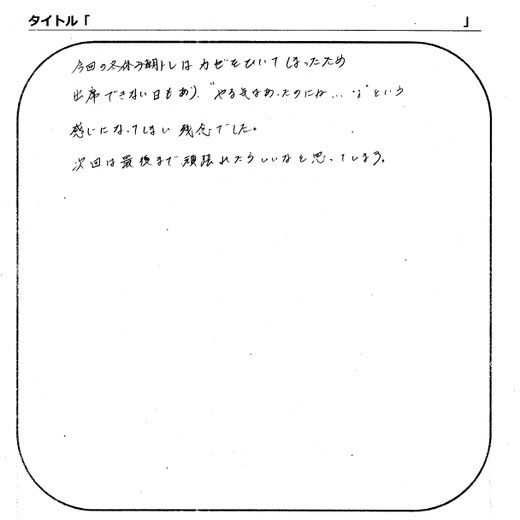 タイトル「 」
今回の冬休み朝トレはカゼをひいてしまったため
出席できない日もあり、"やる気はあったのには…;"という
感じになってしまい残念でした。
次回は最後まで頑張れたらいいなと思っています。